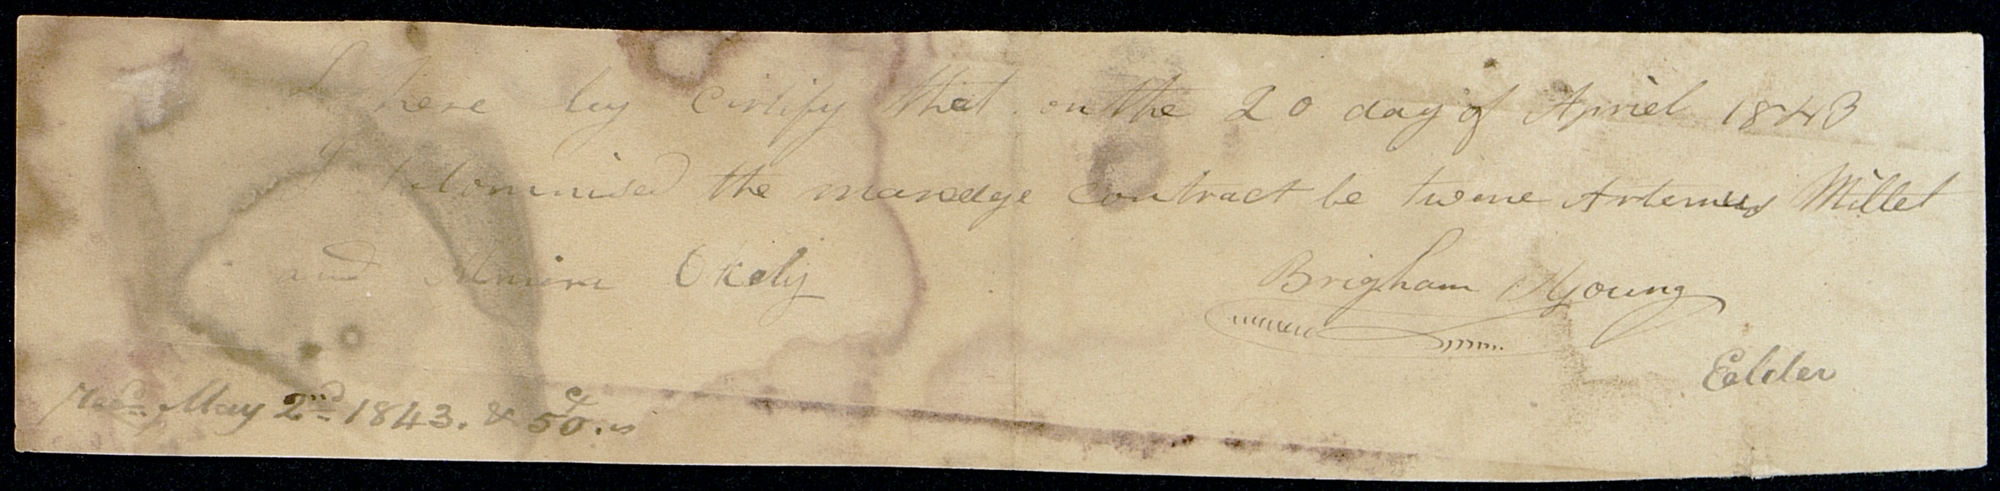 I here by cirtify that on the 20 day of Apriel 1843
I solominised the maredge contract be twene Artemus Millet
and Almira Okely
Brigham Young
Eelder
Recd. May 2nd 1843. & 50. cts